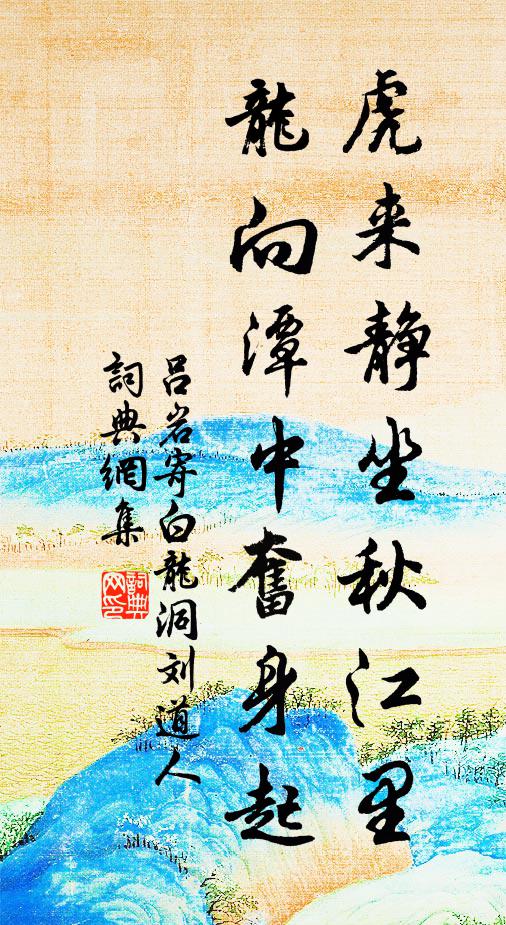 虎来静坐秋江里
龍向潭中奮身起
吕岩寄白龍洞刘道人
詞典網集
詞典
网印